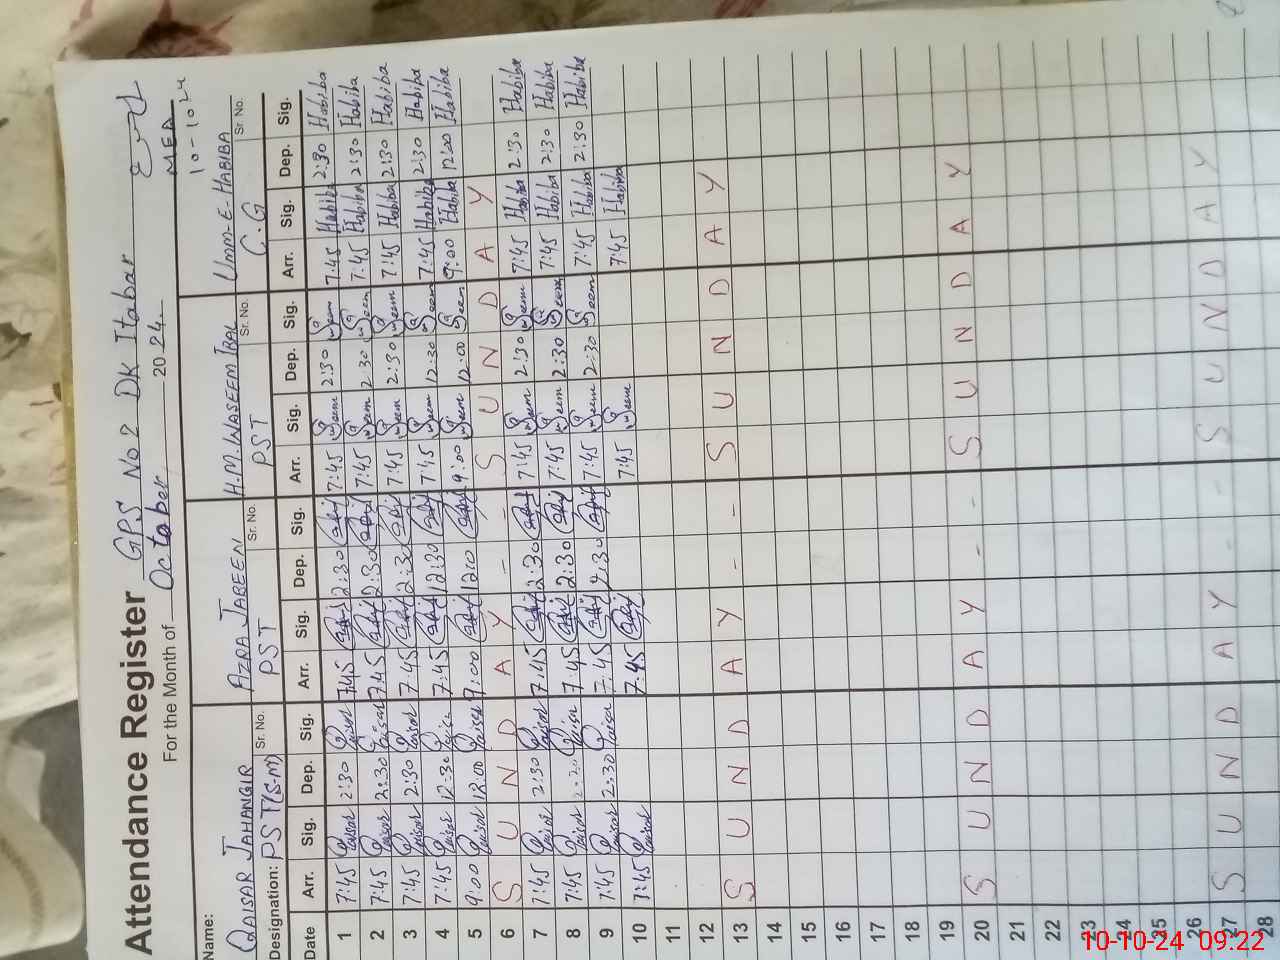 Attendance Register GPS No 2 DK Itabar
For the Month of October 2024
MEA
10-1024
Name: QAISAR JAHANGIR AZRA JABEEN H.M.WASEEM IBAL Umm-E-HABIBA
Designation: PST(S-M) Sr. No. PST Sr. No. PST Sr. No. C.G Sr. No.
Date Arr. Sig. Dep. Sig. Arr. Sig. Dep. Sig. Arr. Sig. Dep. Sig. Arr. Sig. Dep. Sig.
1 7:45 Qaisar 2:30 Qaisar 7:45 2:30 7:45 Waseem 2:30 Waseem 7:45 Habiba 2:30 Habiba
2 7:45 Qaisar 2:30 Qaisar 7:45 2:30 7:45 Waseem 2:30 Waseem 7:45 Habiba 2:30 Habiba
3 7:45 Qaisar 2:30 Qaisar 7:45 2:30 7:45 Waseem 2:30 Waseem 7:45 Habiba 2:30 Habiba
4 7:45 Qaisar 12:30 Qaisar 7:45 12:30 7:45 Waseem 12:30 Waseem 7:45 Habiba 2:30 Habiba
5 9:00 Qaisar 12:00 Qaisar 9:00 1200 9:00 Waseem 12:00 Waseem 9:00 Habiba 1200 Habiba
6 S U N D A Y - - S U N D A Y
7 7:45 Qaisar 2:30 Qaisar 7:45 2:30 7:45 Waseem 2:30 Waseem 7:45 Habiba 2:30 Habiba
8 7:45 Qaisar 2:30 Qaisar 7:45 2:30 7:45 Waseem 2:30 Waseem 7:45 Habiba 2:30 Habiba
9 7:45 Qaisar 2:30 Qaisar 7:45 2:30 7:45 Waseem 2:30 Waseem 7:45 Habiba 2:30 Habiba
10 7:45 Qaisar 7:45 7:45 Waseem 7:45 Habiba
11
12
13 S U N D A Y - - S U N D A Y
14
15
16
17
18
19
20 S U N D A Y - - S U N D A Y
21
22
23
24
25
26
27 S U N D A Y - - S U N D A Y
28
10-10-24 09:22